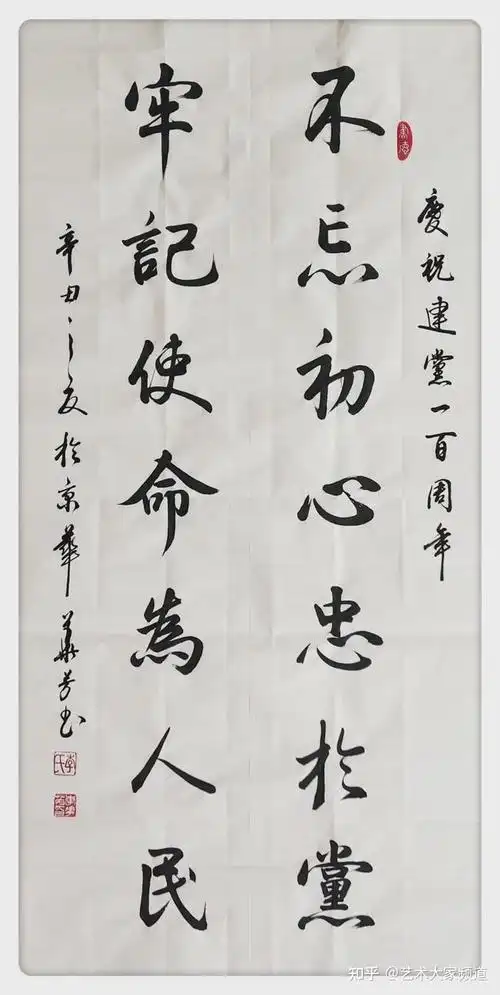 慶祝建黨一百周年
不忘初心忠於黨
牢記使命為人民
辛丑之夏於京華
華芳书
李氏
知乎 @艺术大家频道